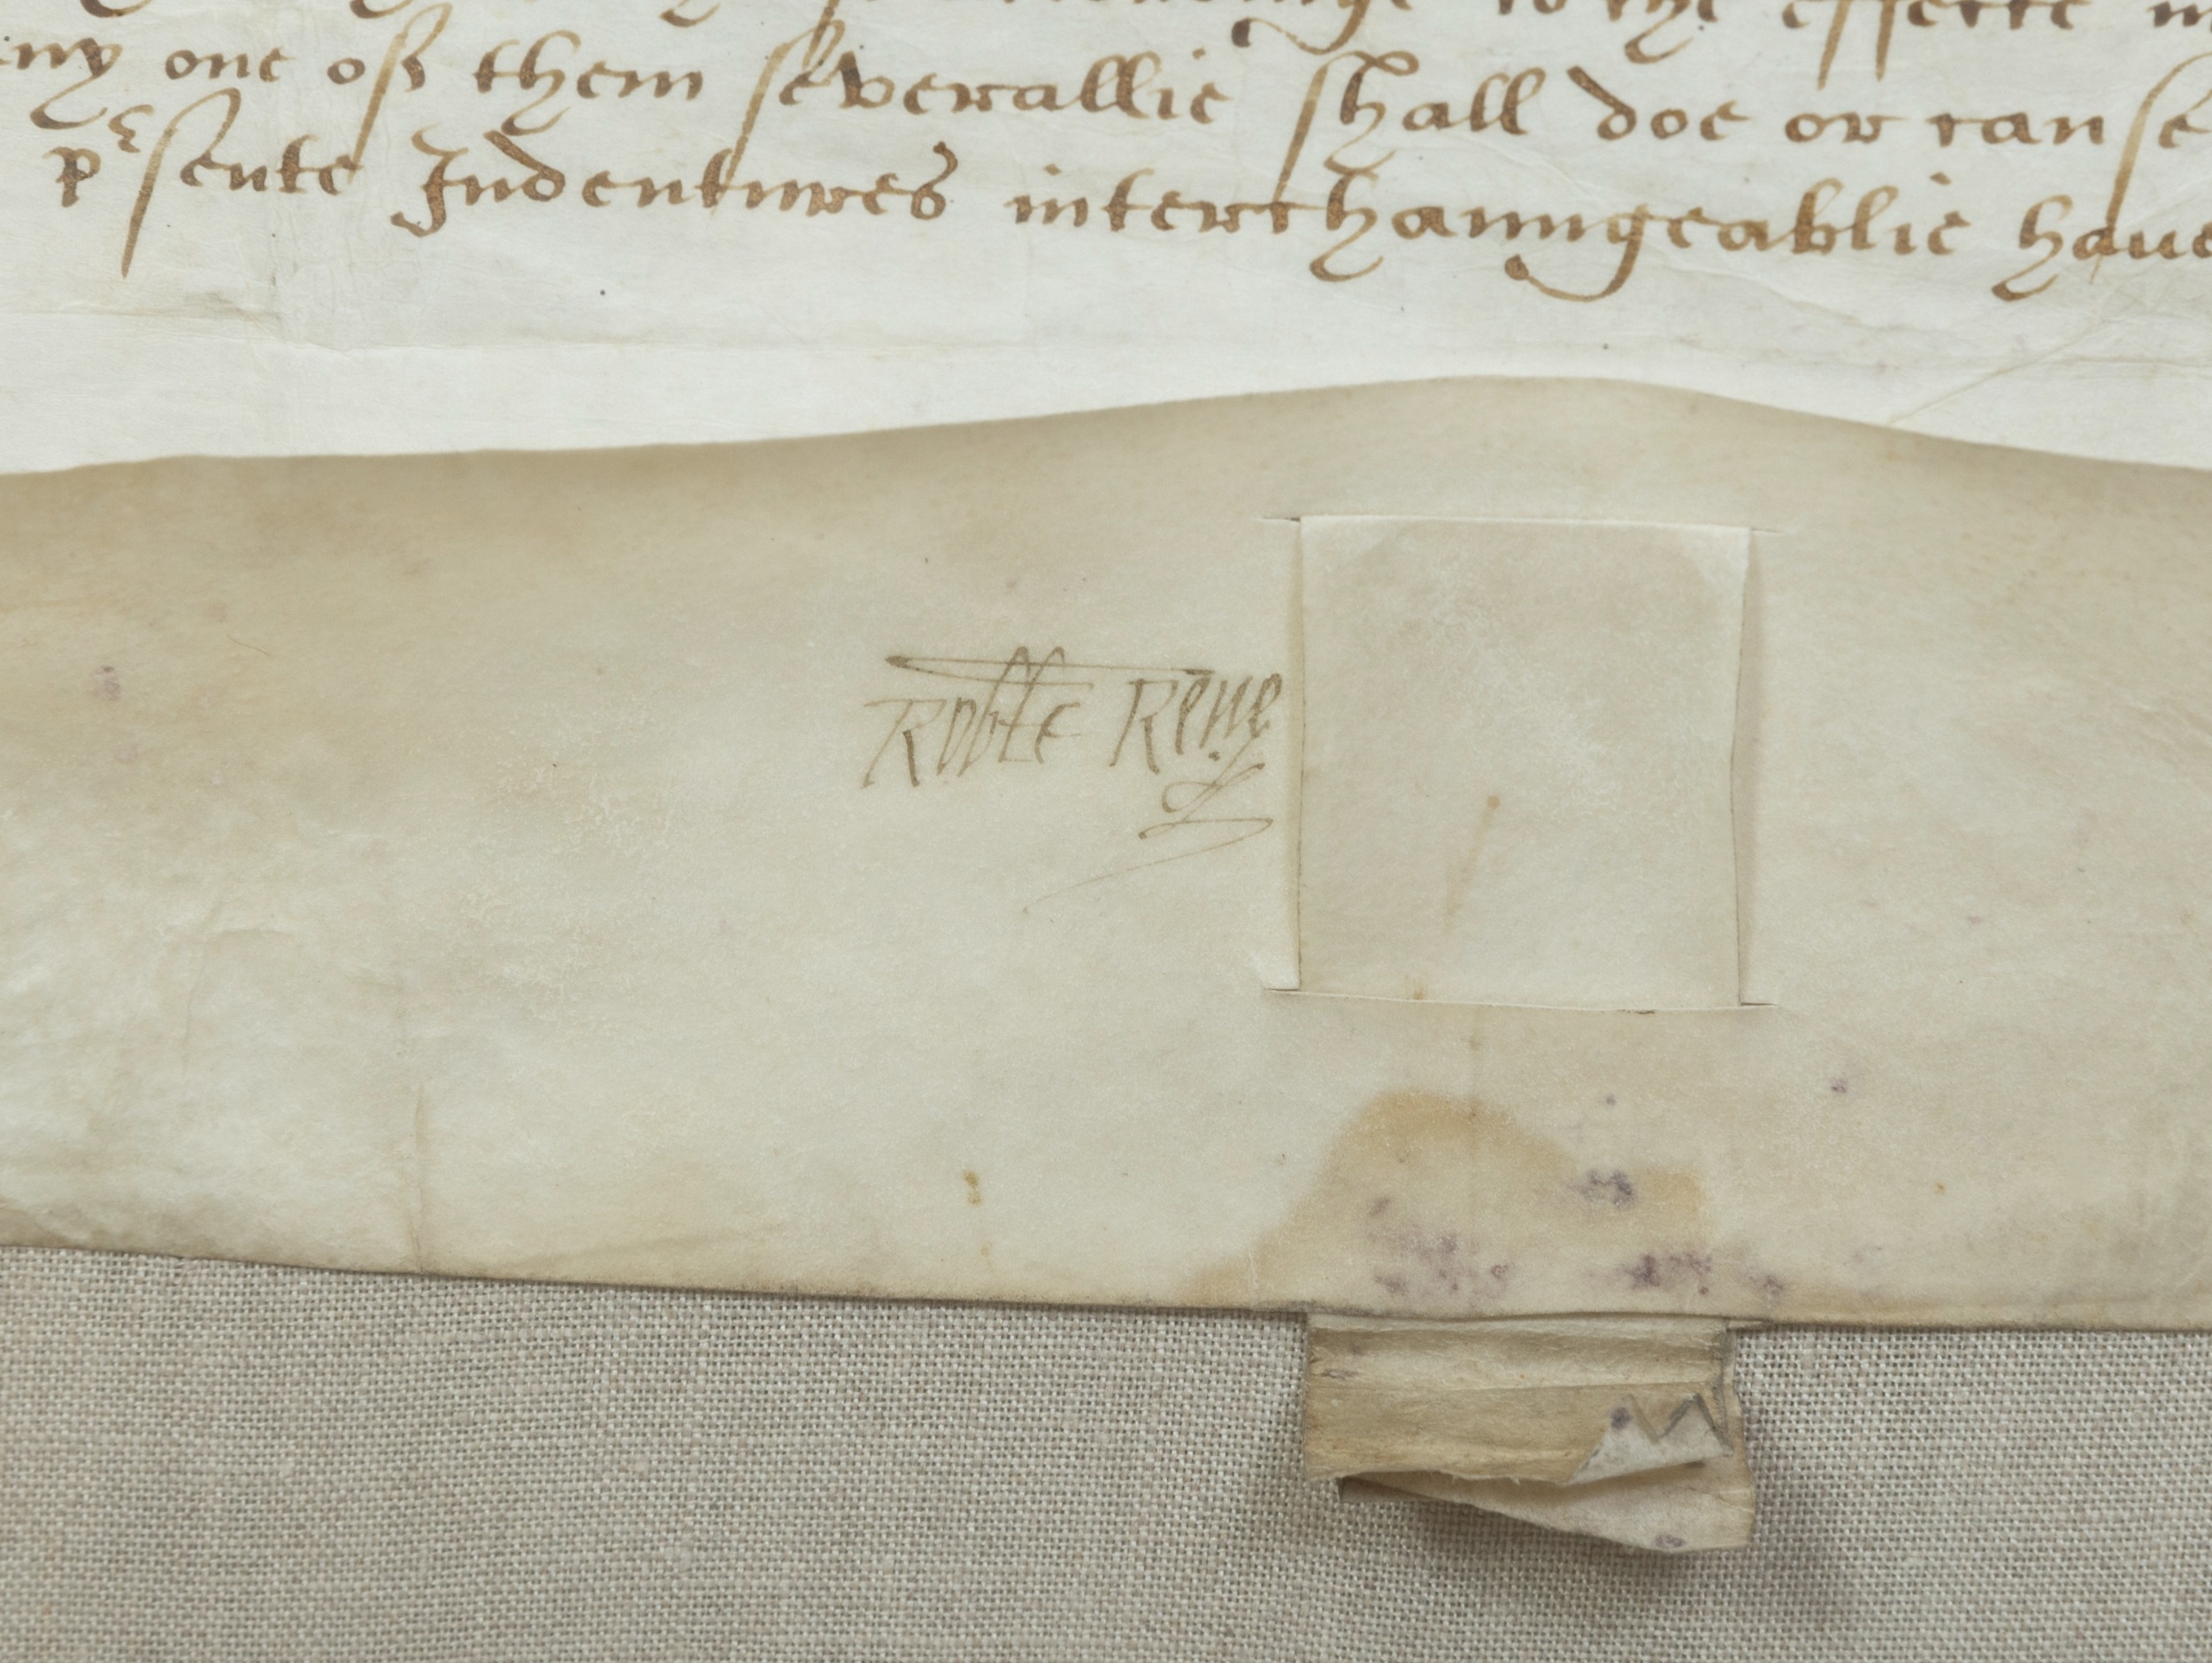 to the effecte
ny one of them severallie shall doe or can se
pʳsente Indentures interchaungeablie haue
Robte Kene